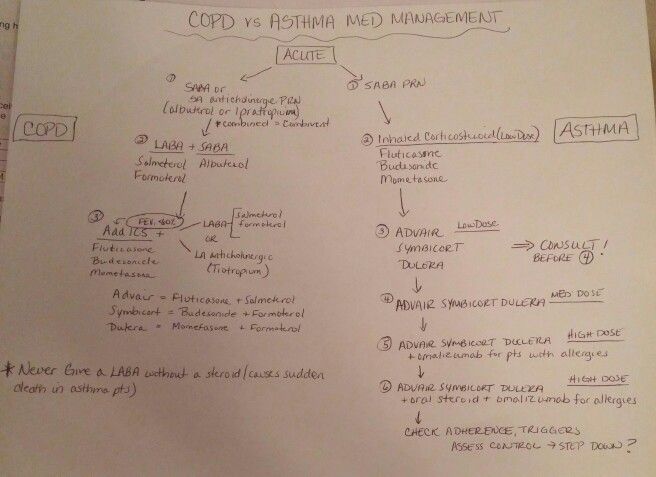 COPD vs ASTHMA MED MANAGEMENT
ACUTE
COPD
① SABA or
SA anticholinergic PRN
(albuterol or Ipratropium)
* combined = Combivent
② LABA + SABA
Salmeterol Albuterol
Formoterol
③ FEV₁ <60%
Add ICS +
Fluticasone
Budesonide
Mometasone
LABA
Salmeterol
formoterol
OR
LA Anticholinergic
(Tiotropium)
Advair = Fluticasone + Salmeterol
Symbicort = Budesonide + Formoterol
Dulera = Mometasone + Formoterol
* Never Give a LABA without a steroid (causes sudden
death in asthma pts)
ASTHMA
① SABA PRN
② Inhaled Corticosteroid (Low Dose)
Fluticasone
Budesonide
Mometasone
③ ADVAIR Low Dose
SYMBICORT
DULERA
⇒ CONSULT!
BEFORE ④
④ ADVAIR SYMBICORT DULERA MED DOSE
⑤ ADVAIR SYMBICORT DULERA HIGH DOSE
+ omalizumab for pts with allergies
⑥ ADVAIR SYMBICORT DULERA HIGH DOSE
+ oral steroid + omalizumab for allergies
CHECK ADHERENCE, TRIGGERS
ASSESS CONTROL → STEP DOWN?